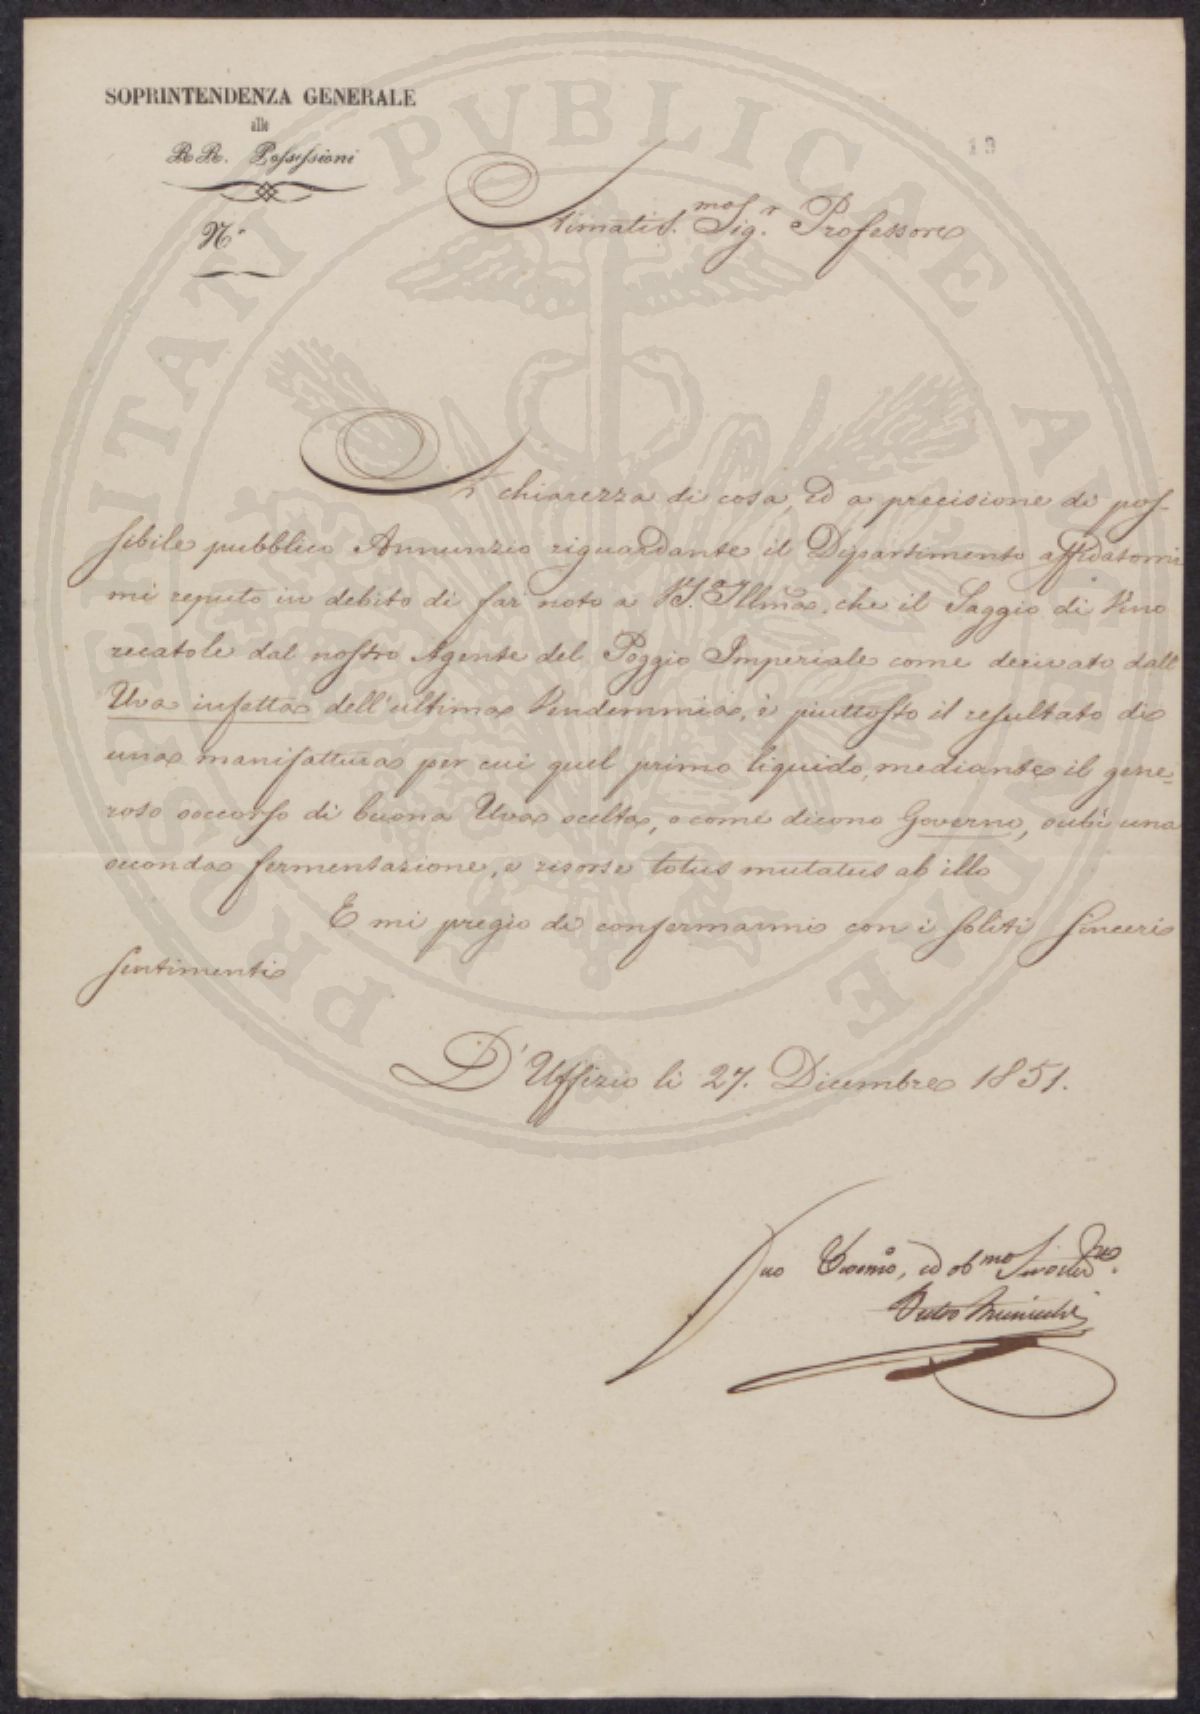 SOPRINTENDENZA GENERALE
alle
RR. Possessioni
N.°
19
Stimatis.mo Sig.r Professore
A chiarezza di cosa, ed a precisione di pos-
sibile pubblico Annunzio riguardante il Dipartimento affidatomi
mi reputo in debito di far noto a VS. Illma, che il Saggio di Vino
recatole dal nostro Agente del Poggio Imperiale come derivato dall'
Uva infetta dell'ultima Vendemmia, è piuttosto il resultato di
una manifattura per cui quel primo liquido, mediante il gene-
roso soccorso di buona Uva scelta, o come dicono Governo, subì una
seconda fermentazione, e risorse totus mutatus ab illo
E mi pregio di confermarmi con i soliti sinceri
sentimenti
D'Uffizio li 27. Dicembre 1851.
Suo Devmo, ed obmo Servitore
PROSPERITATI PUBLICAE AUGENDAE